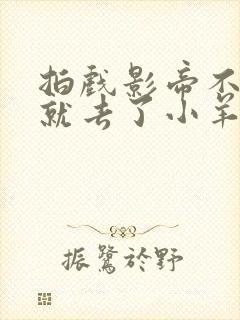 拍戏影帝不
就去了小羊
振鹭於野